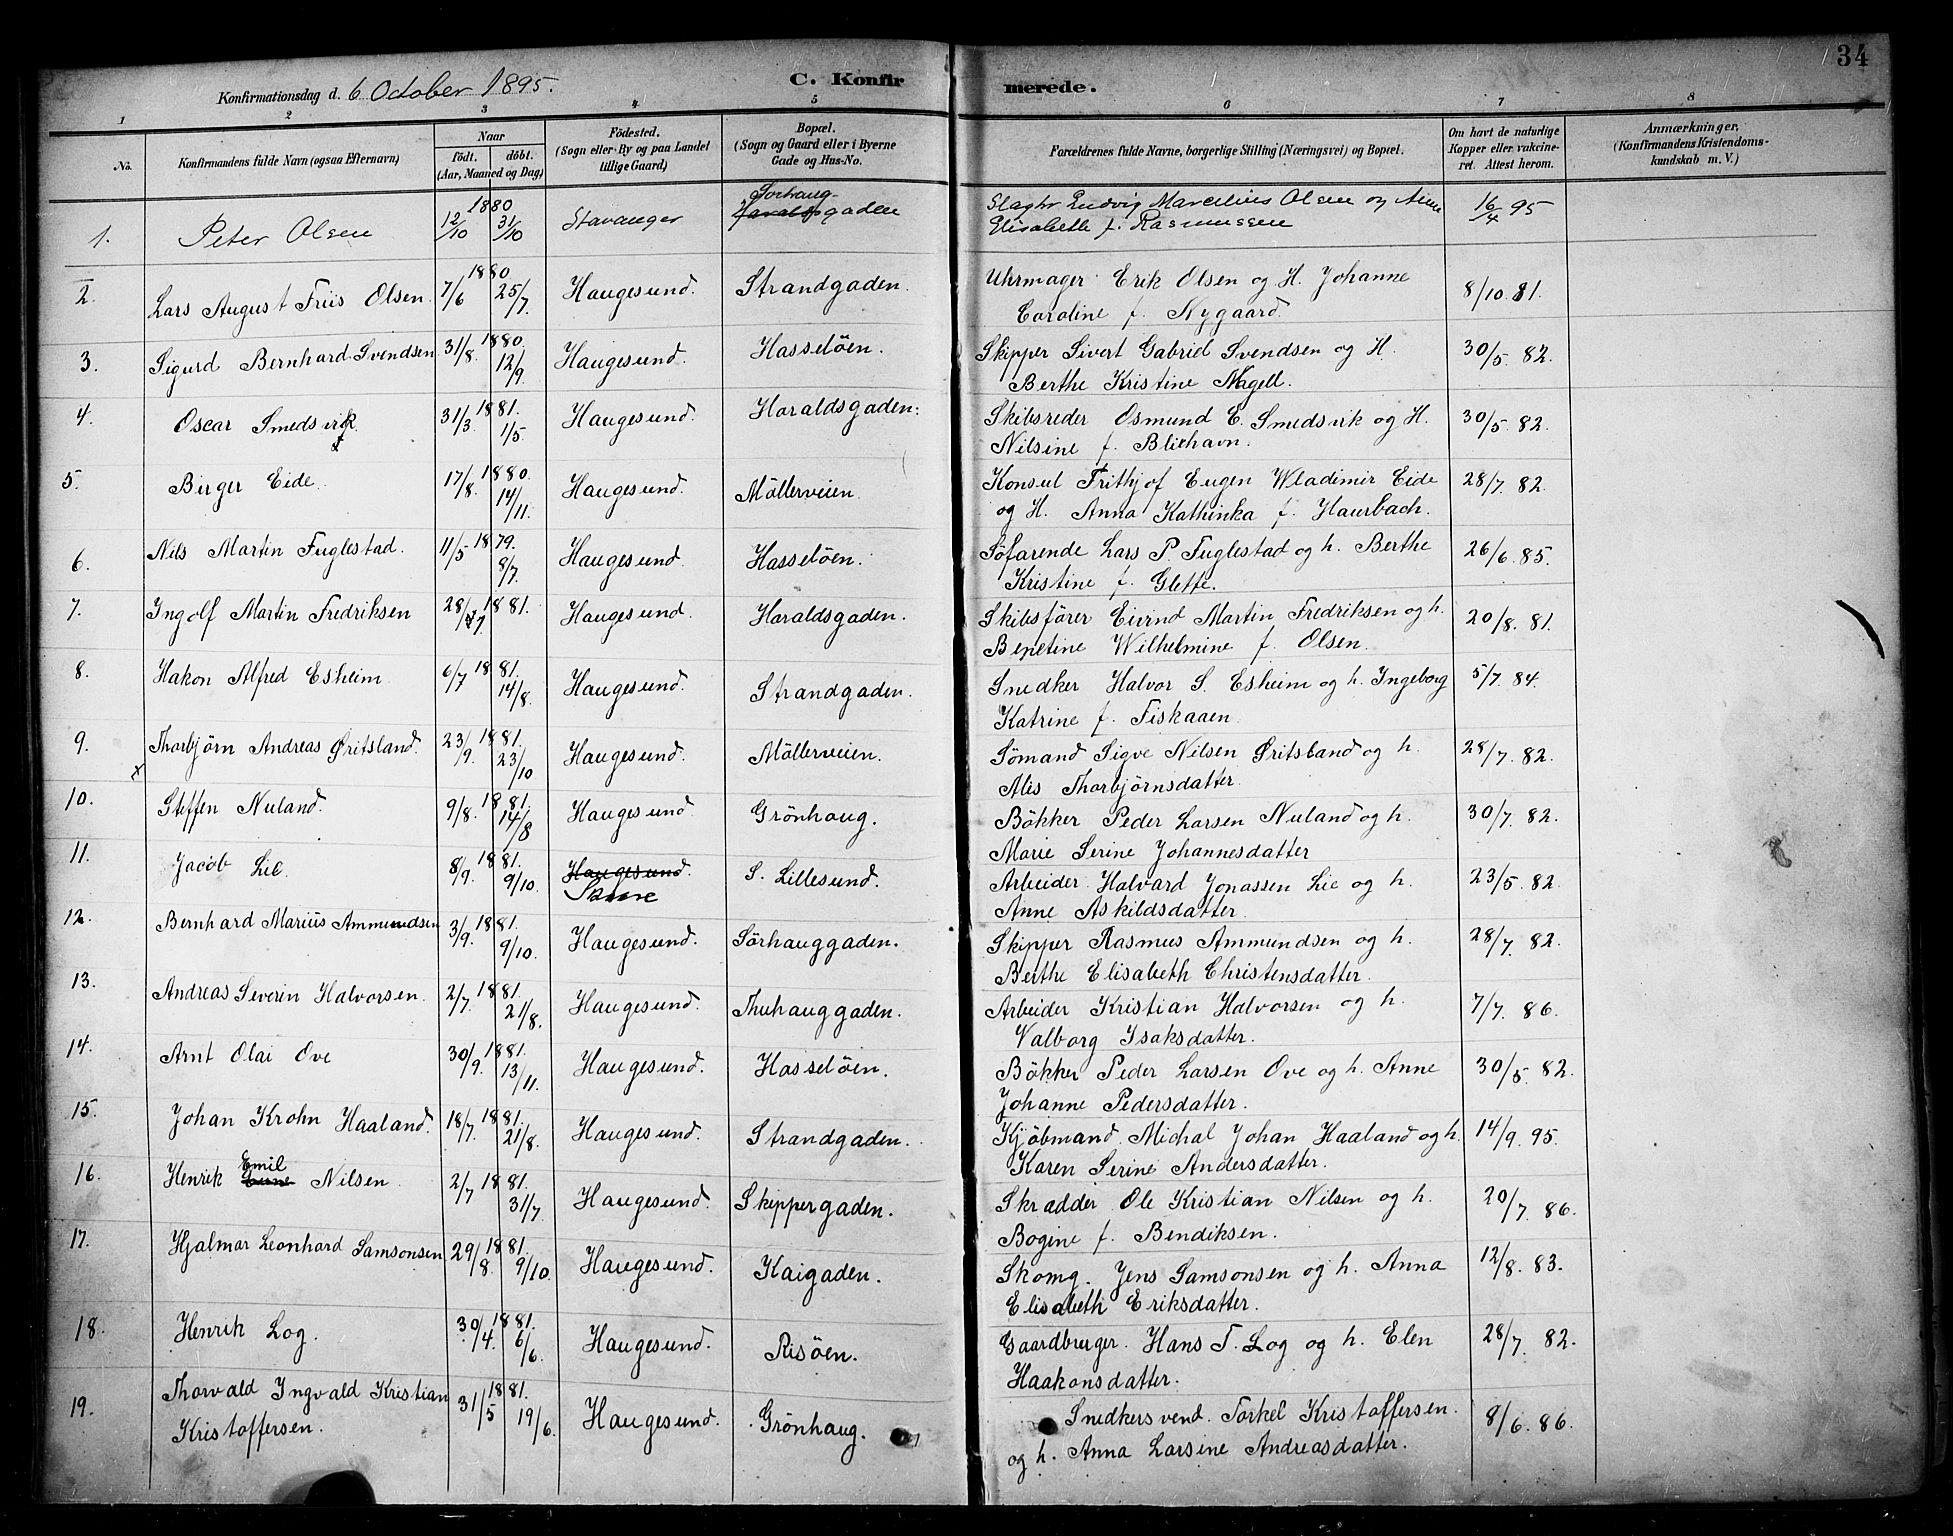 34
Konfirmationsdag d. 6 October 1895. C. Konfirmerede.
1 2 3 4 5 6 7 8
No. Konfirmandens fulde Navn (ogsaa Efternavn) Naar födt. döbt. (Aar, Maaned og Dag) Födested. (Sogn eller By og paa Landet tillige Gaard) Bopæl. (Sogn og Gaard eller i Byerne Gade og Hus-No. Forældrenes fulde Navne, borgerlige Stilling (Næringsvei) og Bopæl. Om havt de naturlige Kopper eller vakcineret. Attest herom. Anmærkninger. (Konfirmandens Kristendomskundskab m. V.)
1. Peter Olsen 1880 12/10 31/10 Stavanger Sorhauggaden Slagtr Ludvig Marcelius Olsen og Anne 16/4 95
Elisabeth f. Rasmussen
2. Lars August Friis Olsen 7/6 1880 25/7 Haugesund. Strandgaden. Uhrmager Erik Olsen og H. Johanne 8/10 81.
Caroline f. Nygaard.
3. Sigurd Bernhard Svendsen 31/8. 1880. 12/9. Haugesund. Hasseløen. Skipper Sivert Gabriel Svendsen og H. 30/5. 82.
Berthe Kristine Nagell.
4. Oscar Smedsvik. 31/3. 1881. 1/5. Haugesund. Haraldsgaden. Skibsreder Osmund E. Smedsvik og H. 30/5. 82.
Nilsine f. Blikhavn.
5. Birger Eide. 17/8. 1880. 14/11. Haugesund. Möllerveien. Konsul Frithjof Eugen Wladimir Eide 28/7. 82.
og H. Anna Kathinka f. Haurbach.
6. Nils Martin Fuglestad. 11/5 1879. 8/7. Haugesund. Hasseløen. Söfarende Lars P Fuglestad og h. Berthe 26/6. 85.
Kristine f. Glette.
7. Ingolf Martin Fredriksen 28/7. 1881. Haugesund. Haraldsgaden. Skibsförer Eivind Martin Fredriksen og h. 20/8. 81.
Benetine Wilhelmine f. Olsen.
8. Hakon Alfred Esheim 6/7 1881. 14/8. Haugesund. Strandgaden. Snedker Halvor S. Esheim og h. Ingeborg 5/7. 84.
Katrine f. Fiskaaen.
9. Thorbjörn Andreas Øritsland. 23/9. 1881. 23/10 Haugesund. Möllerveien. Sömand Sigve Nilsen Øritsland og h. 28/7. 82.
Alis Thorbjörnsdatter.
10. Steffen Nuland. 9/8. 1881. 14/8 Haugesund. Grönhaug. Bökker Peder Larsen Nuland og h. 30/7. 82.
Marie Serine Johannesdatter
11. Jacob Lie. 8/9. 1881. 9/10. Haugesund. Skaare S. Lillesund. Arbeider Halvard Jonassen Lie og h. 23/5. 82.
Anne Askildsdatter.
12. Bernhard Marius Ammundsen 3/9. 1881. 9/10. Haugesund. Sörhauggaden. Skipper Rasmus Ammundsen og h. 28/7. 82.
Berthe Elisabeth Christensdatter.
13. Andreas Severin Halvorsen. 2/7. 1881. 21/8. Haugesund. Thuhauggaden. Arbeider Kristian Halvorsen og h. 7/7. 86.
Valborg Isaksdatter.
14. Arnt Olai Ove 30/9. 1881. 13/11. Haugesund. Hasseløen. Bökker Peder Larsen Ove og h. Anne 30/5. 82.
Johanne Pedersdatter.
15. Johan Krohn Haaland. 18/7. 1881. 21/8. Haugesund. Strandgaden. Kjöbmand Michal Johan Haaland og h. 14/9. 95.
Karen Serine Andersdatter.
16. Henrik Emil Nilsen. 2/7 1881. 31/7. Haugesund. Skippergaden. Skradder Ole Kristian Nilsen og h. 20/7. 86.
Bogine f. Bendiksen.
17. Hjalmar Leonhard Samsonsen 29/8. 1881. 9/10. Haugesund. Kaigaden. Skomg. Jens Samsonsen og h. Anna 12/8. 83.
Elisabeth Eriksdatter.
18. Henrik Log. 30/4. 1881. 6/6. Haugesund. Risöen. Gaardbruger. Hans T. Log og h. Elen 28/7. 82.
Haakonsdatter.
19. Thorvald Ingvald Kristian 31/5 1881. 19/6. Haugesund. Grönhaug. Snedkersvend. Torkel Kristoffersen. 8/6. 86.
Kristoffersen. og h. Anna Larsine Andreasdatter.